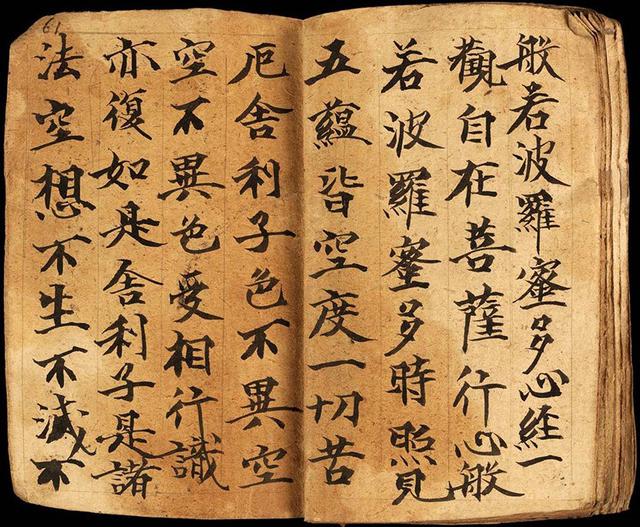 般若波羅蜜多心經一
觀自在菩薩行心般
若波羅蜜多時照見
五蘊皆空度一切苦
厄舍利子色不異空
空不異色受相行識
亦復如是舍利子是諸
法空想不生不滅不
61